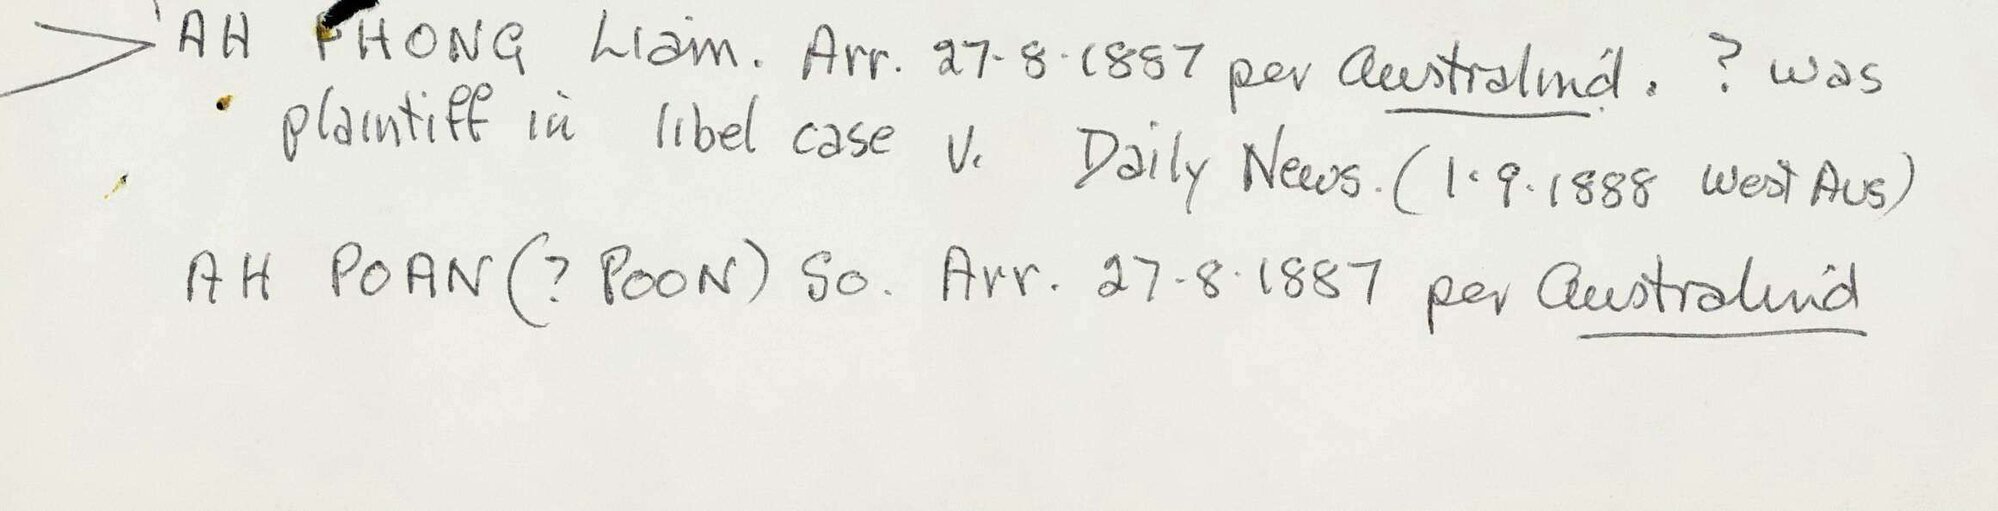 AH PHONG Liam. Arr. 27-8-1887 per Australind. ? was
plaintiff in libel case V. Daily News. (1.9.1888 West Aus)
AH POAN (? POON) So. Arr. 27-8-1887 per Australind